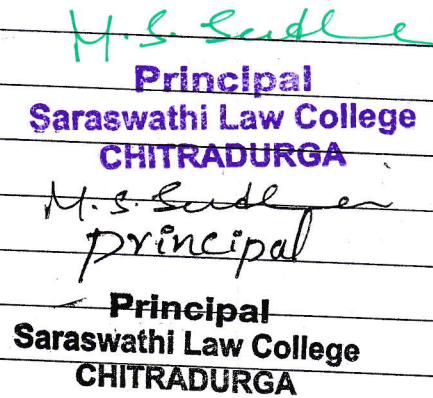 M. S.
Principal
Saraswathi Law College
CHITRADURGA
M. S.
principal
Principal
Saraswathi Law College
CHITRADURGA